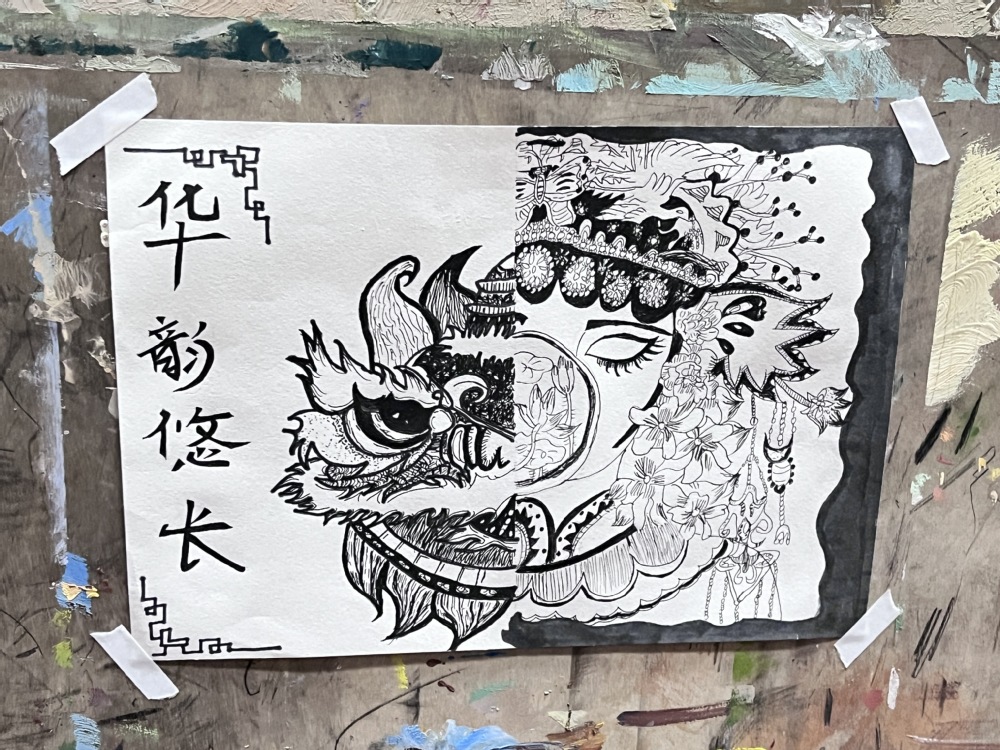 华韵悠长